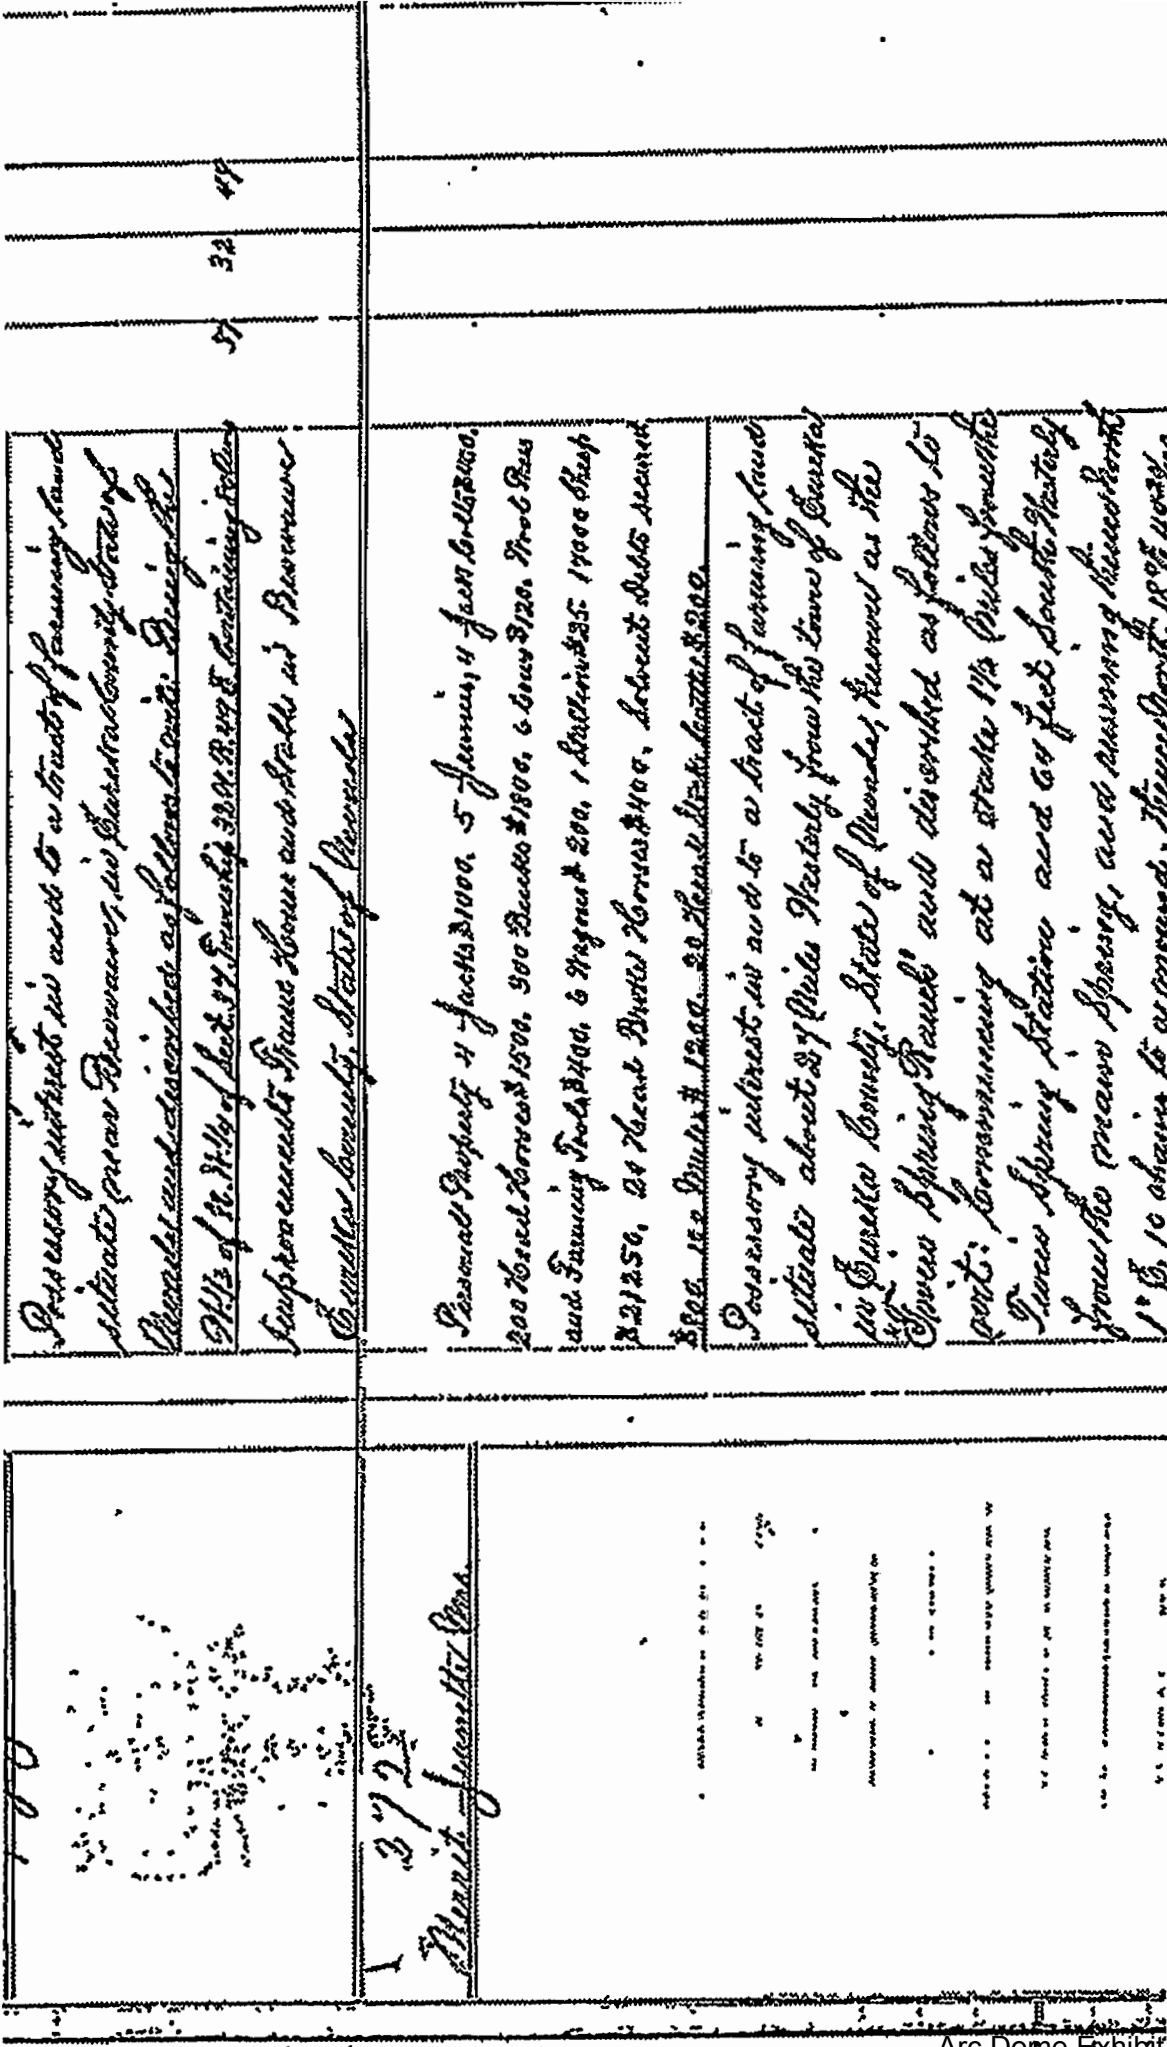 Possessory interest in and to a tract of farming land
situate near Beowawe, in Eureka County State of
Nevada and described as follows to wit: Being the
W.½ of N.W.¼ of Sect. 34 Township 32 N.R. 49 E. Containing
34 32 49
Improvements Frame House and Stables in Beowawe
Eureka County, State of Nevada
372
Merritt
Personal Property 4 Jacks $1000. 5 Jennies, 4 Jack Colts $400.
200 Horses $1500. 900 Bucks $1800. 6 Cows $120.
and Farming Tools $400. 6 Wagons $200. 1 Stallion $25 17000 Sheep
$21250. 20 Head Horses $400. Solvent Debts
$800. Mules $1200. 20 Head Stock Cattle $200.
Possessory interest in and to a tract of farming land
situate about 27 Miles Westerly from the town of Eureka
in Eureka County, State of Nevada, known as the
"Twin Spring Ranch" and described as follows to
wit: Commencing at a stake 1½ Miles from the
Twin Spring Station and 64 feet South Easterly
from the main Spring, and running thence North
1° E. 10 chains to a mound, thence North
Arc Demo Exhibit